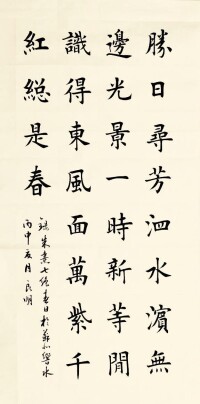 勝日尋芳泗水濱無
邊光景一時新等閒
識得東風面萬紫千
紅総是春
錄朱熹七絕春日於蘇州
丙申 月 明